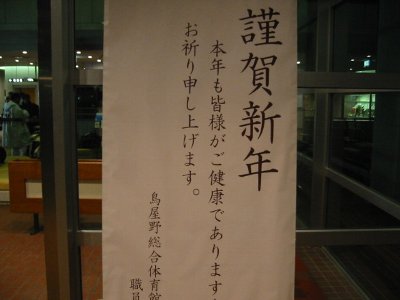 謹賀新年
本年も皆様がご健康でありますよ
お祈り申し上げます。
鳥屋野総合体育館
職員